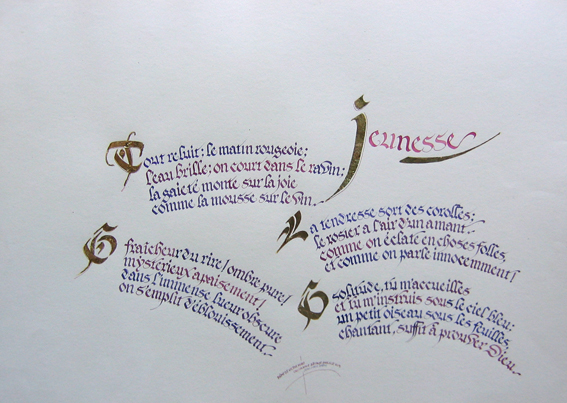 Jeunesse
Tout reluit; le matin rougeoie;
l'eau brille; on court dans le ravin;
la gaieté monte sur la joie
comme la mousse sur le vin.
La tendresse sort des corolles;
le rosier a l'air d'un amant.
comme on éclate en choses folles,
et comme on parle innocemment!
O fraîcheur du rire! ombre pure!
mystérieux apaisement!
dans l'immense lueur obscure
on s'emplit d'éblouissement.
O solitude, tu m'accueilles
et tu m'instruis sous le ciel bleu;
un petit oiseau sous les feuilles,
chantant, suffit à prouver Dieu.